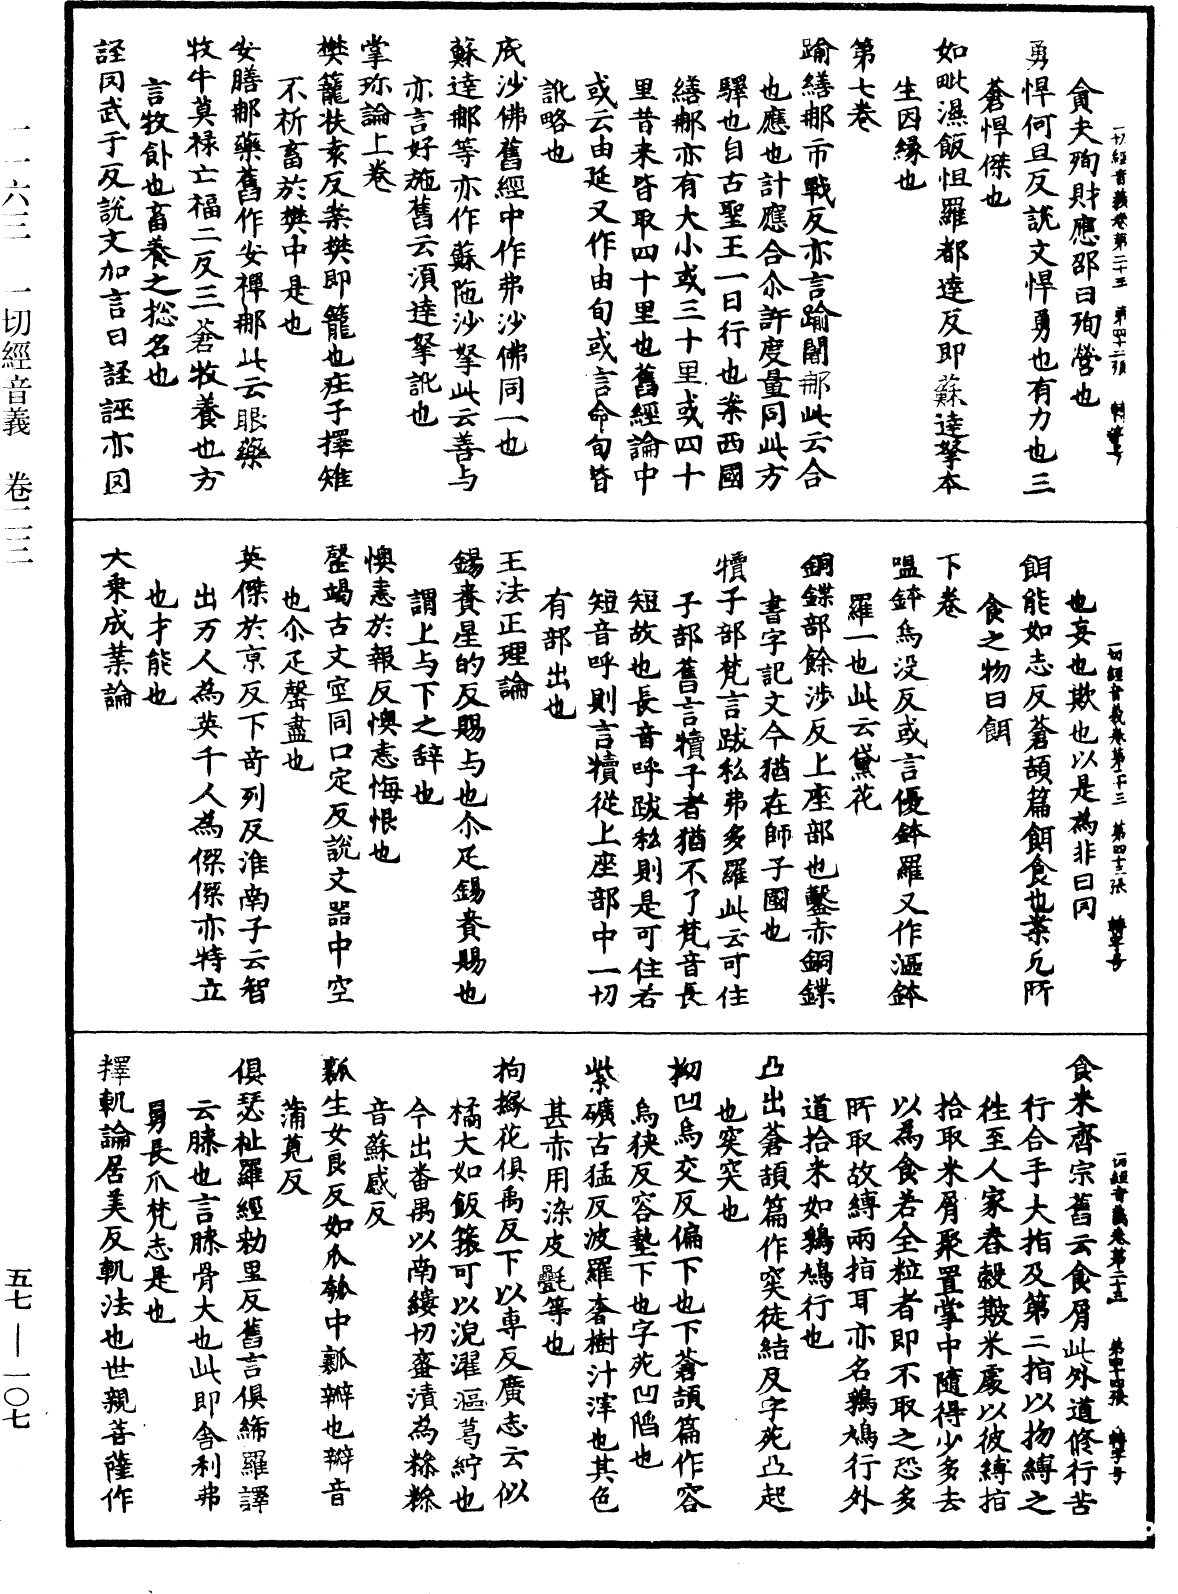 一切經音義卷第二十三　第四十二張　轉字号
貪夫殉財應邵曰殉營也
勇悍何旦反說文悍勇也有力也三
蒼悍傑也
如毗濕飯怛羅都達反即蘇達拏本
生因緣也
第七卷
踰繕那市戰反亦言踰闍那此云合
也應也計應合尒許度量同此方
驛也自古聖王一日行也案西國
繕那亦有大小或三十里或四十
里昔来皆取四十里也舊經論中
或云由延又作由旬或言命旬皆
訛略也
底沙佛舊經中作弗沙佛同一也
蘇達那等亦作蘇陁沙拏此云善与
亦言好施舊云須達拏訛也
掌珎論上卷
樊籠扶袁反案樊即籠也庄子擇雉
不祈畜於樊中是也
安膳那藥舊作安禪那此云眼藥
牧牛莫禄亡福二反三蒼牧養也方
言牧飤也畜養之揔名也
誣罔武于反說文加言曰誣誣亦罔
一切經音義卷第二十三　第四十三張　轉字号
也妄也欺也以是為非曰罔
餌能如志反蒼頡篇餌食也案凢所
食之物曰餌
下卷
嗢鉢烏没反或言優鉢羅又作漚鉢
羅一也此云黛花
銅鍱部餘涉反上座部也鏨赤銅鍱
書字記文今猶在師子國也
犢子部梵言跋私弗多羅此云可住
子部舊言犢子者猶不了梵音長
短故也長音呼跋私則是可住若
短音呼則言犢從上座部中一切
有部出也
王法正理論
錫賚星的反賜与也尒疋錫賚賜也
謂上与下之辞也
懊恚於報反懊恚悔恨也
罄竭古文窒同口定反說文器中空
也尒疋罄盡也
英傑於京反下竒列反淮南子云智
出万人為英千人為傑傑亦特立
也才能也
大乗成業論
一切經音義卷第二十三　第四十四張　轉字号
食米齊宗舊云食屑此外道修行苦
行合手大指及第二指以物縛之
徃至人家舂穀簸米處以彼縛指
拾取米屑聚置掌中隨得少多去
以為食若全粒者即不取之恐多
所取故縛兩指耳亦名鵶鳩行外
道拾米如鵶鳩行也
凸出蒼頡篇作突徒結反字苑凸起
也突突也
拗凹烏交反偏下也下蒼頡篇作容
烏狹反容墊下也字苑凹陷也
紫礦古猛反波羅奢樹汁滓也其色
甚赤用染皮㲲等也
拘櫞花俱禹反下以專反廣志云似
橘大如飯篠可以浣濯漚葛紵也
今出番禺以南縷切蜜漬為糝糝
音蘇感反
瓤生女良反如爪瓠中瓤瓣也瓣音
蒲莧反
俱瑟祉羅經勑里反舊言俱絺羅譯
云膝也言膝骨大也此即舎利弗
舅長爪梵志是也
釋軌論居美反軌法也世親菩薩作
一一六三　一切經音義　卷二三
五七——一〇七